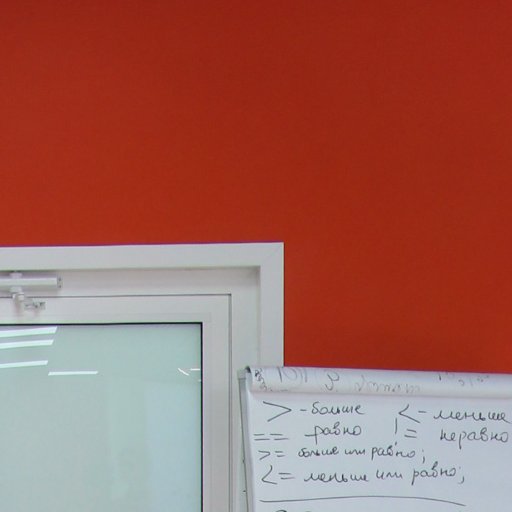 > - больше < - меньше
== равно != неравно
>= больше или равно;
<= меньше или равно;